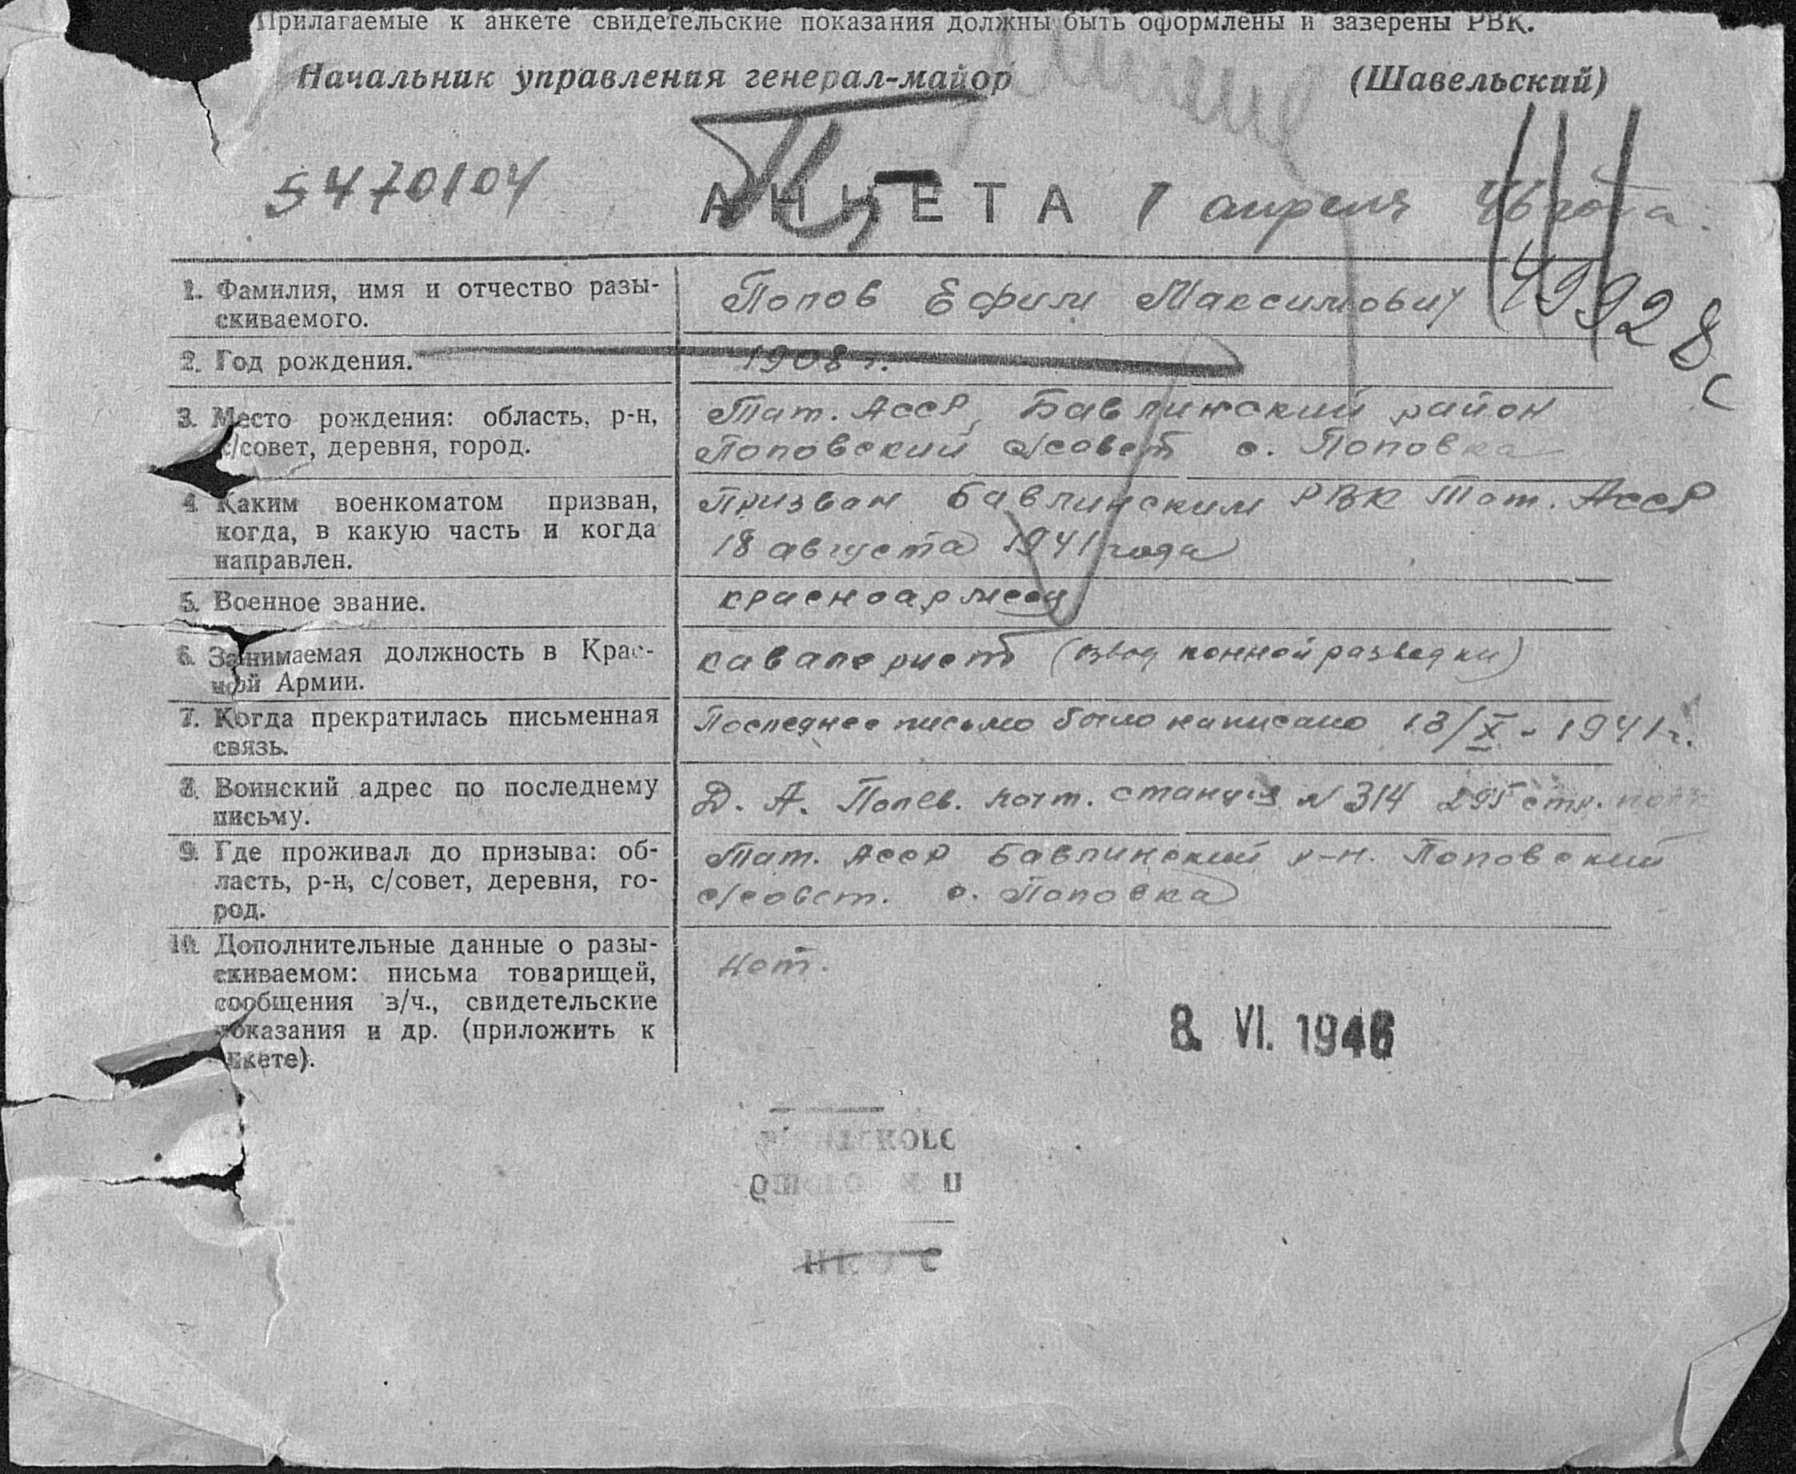 Прилагаемые к анкете свидетельские показания должны быть оформлены и зазерены РВК.
Начальник управления генерал-майор (Шавельский)
5470104
АНКЕТА 1 апреля 46 года
49928с
1. Фамилия, имя и отчество разы-
скиваемого.
Попов Ефим Максимович
2. Год рождения.
1908 г.
3. Место рождения: область, р-н,
с/совет, деревня, город.
Тат. АССР, Бавлинский район
Поповский с/совет с. Поповка
4. Каким военкоматом призван,
когда, в какую часть и когда
направлен.
Призван Бавлинским РВК Тат. АССР
18 августа 1941 года
5. Военное звание.
красноармеец
6. Занимаемая должность в Крас-
ной Армии.
кавалерист (взвод конной разведки)
7. Когда прекратилась письменная
связь.
Последнее письмо было написано 13/X - 1941 г.
8. Воинский адрес по последнему
письму.
Д. А. Полев. почт. станция № 314 295 стр. полк
9. Где проживал до призыва: об-
ласть, р-н, с/совет, деревня, го-
род.
Тат. АССР Бавлинский р-н. Поповский
с/совет. с. Поповка
10. Дополнительные данные о разы-
скиваемом: письма товарищей,
сообщения в/ч., свидетельские
показания и др. (приложить к
анкете).
Нет.
8. VI. 1946